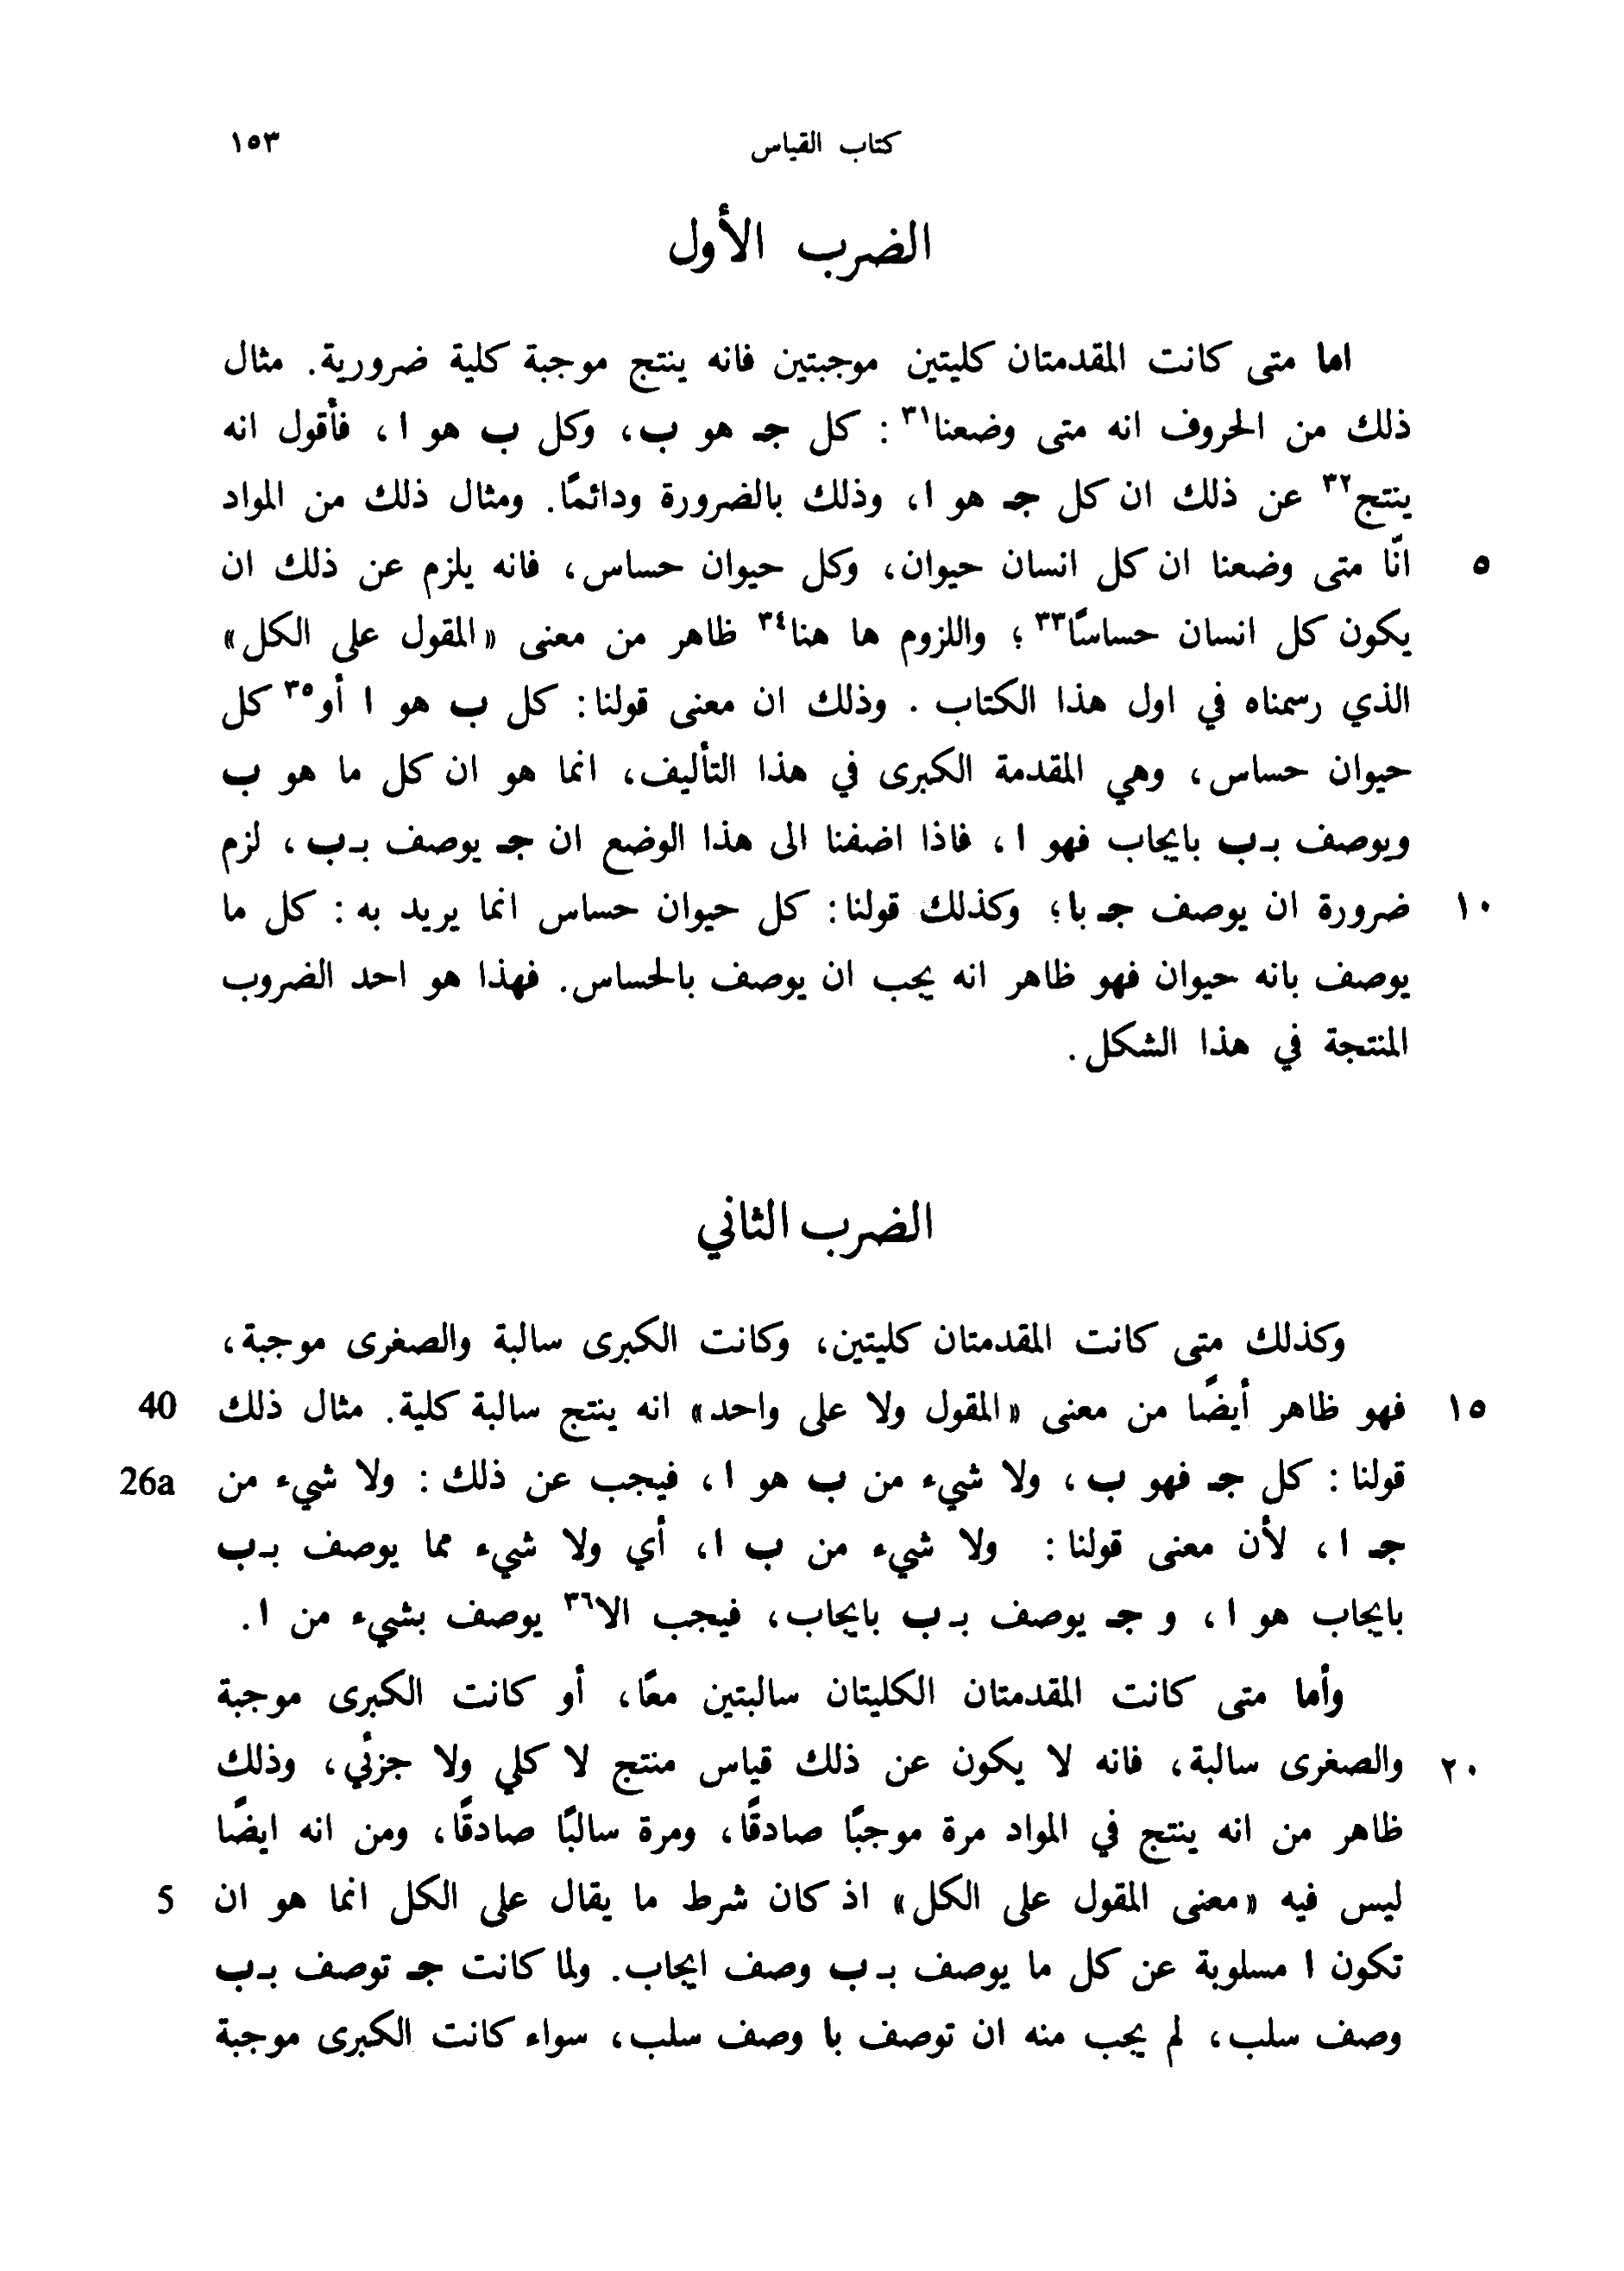 كتاب القياس ١٥٣
الضرب الأول
اما متى كانت المقدمتان كليتين موجبتين فانه ينتج موجبة كلية ضرورية. مثال
ذلك من الحروف انه متى وضعنا٣١ : كل جـ هو ب، وكل ب هو ا، فأقول انه
ينتج٣٢ عن ذلك ان كل جـ هو ا، وذلك بالضرورة ودائمًا. ومثال ذلك من المواد
٥ انّا متى وضعنا ان كل انسان حيوان، وكل حيوان حساس، فانه يلزم عن ذلك ان
يكون كل انسان حساسًا٣٣ ؛ واللزوم ها هنا٣٤ ظاهر من معنى «المقول على الكل»
الذي رسمناه في اول هذا الكتاب . وذلك ان معنى قولنا: كل ب هو ا أو٣٥ كل
حيوان حساس، وهي المقدمة الكبرى في هذا التأليف، انما هو ان كل ما هو ب
ويوصف بـ ب بايجاب فهو ا ، فاذا اضفنا الى هذا الوضع ان جـ يوصف بـ ب ، لزم
١٠ ضرورة ان يوصف جـ با؛ وكذلك قولنا: كل حيوان حساس انما يريد به : كل ما
يوصف بانه حيوان فهو ظاهر انه يجب ان يوصف بالحساس. فهذا هو احد الضروب
المنتجة في هذا الشكل.
الضرب الثاني
وكذلك متى كانت المقدمتان كليتين، وكانت الكبرى سالبة والصغرى موجبة،
١٥ فهو ظاهر أيضًا من معنى «المقول ولا على واحد» انه ينتج سالبة كلية. مثال ذلك 40
قولنا : كل جـ فهو ب ، ولا شيء من ب هو ا ، فيجب عن ذلك : ولا شيء من 26a
جـ ا ، لأن معنى قولنا : ولا شيء من ب ا، أي ولا شيء مما يوصف بـ ب
بايجاب هو ا ، و جـ يوصف بـ ب بايجاب، فيجب الا٣٦ يوصف بشيء من ا.
وأما متى كانت المقدمتان الكليتان سالبتين معًا، أو كانت الكبرى موجبة
٢٠ والصغرى سالبة، فانه لا يكون عن ذلك قياس منتج لا كلي ولا جزئي، وذلك
ظاهر من انه ينتج في المواد مرة موجبًا صادقًا، ومرة سالبًا صادقًا، ومن انه ايضًا
ليس فيه «معنى المقول على الكل» اذ كان شرط ما يقال على الكل انما هو ان 5
تكون ا مسلوبة عن كل ما يوصف بـ ب وصف ايجاب. ولما كانت جـ توصف بـ ب
وصف سلب، لم يجب منه ان توصف با وصف سلب، سواء كانت الكبرى موجبة